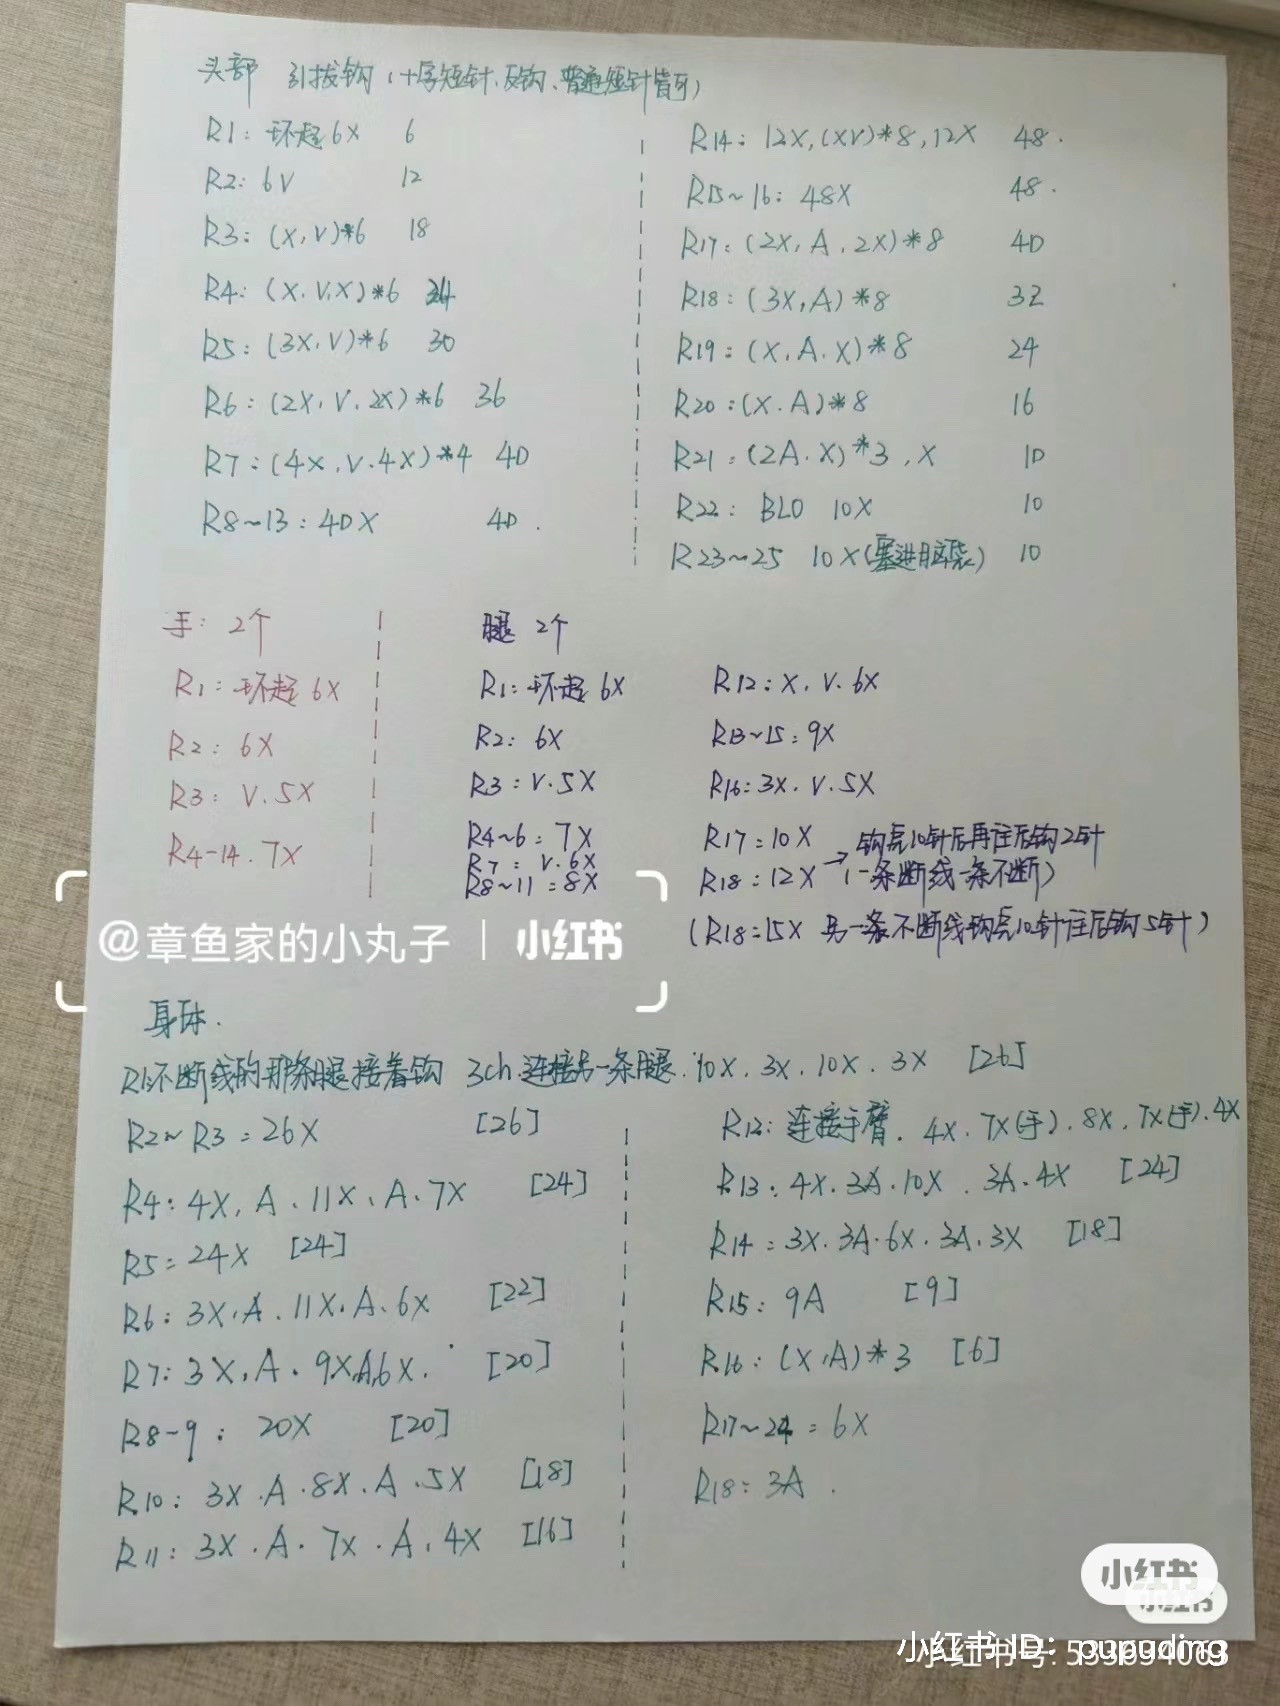 头部 引拔钩（十字短针、反钩、普通短针皆可）
R1：环起6X 6
R2：6V 12
R3：(X,V)*6 18
R4：(X.V.X)*6 24
R5：(3X.V)*6 30
R6：(2X,V.2X)*6 36
R7：(4X,V.4X)*4 40
R8~13：40X 40.
R14：12X,(XV)*8,12X 48.
R15~16：48X 48.
R17：(2X,A.2X)*8 40
R18：(3X,A)*8 32
R19：(X,A.X)*8 24
R20：(X.A)*8 16
R21：(2A.X)*3,X 10
R22：BLO 10X 10
R23~25 10X(塞进脑袋) 10
手：2个
R1：环起6X
R2：6X
R3：V.5X
R4-14.7X
腿 2个
R1：环起6X
R2：6X
R3：V.5X
R4~6：7X
R7：V.6X
R8~11=8X
R12：X.V.6X
R13~15：9X
R16：3X.V.5X
R17=10X
R18：12X → 钩完10针后再往后钩2针
（一条断线一条不断）
（R18=15X 另一条不断线钩完10针往后钩5针）
@章鱼家的小丸子 | 小红书
身体.
R1:不断线的那条腿接着钩 3ch.连接另一条腿.10X.3X.10X.3X [26]
R2~R3=26X [26]
R4：4X,A.11X、A.7X [24]
R5=24X [24]
R6：3X.A.11X.A.6X [22]
R7：3X,A.9X.A.6X. [20]
R8-9：20X [20]
R10：3X.A.8X.A.5X [18]
R11：3X.A.7X.A.4X [16]
R12：连接手臂.4X.7X(手).8X.7X(手).4X
R13：4X.3A.10X.3A.4X [24]
R14=3X.3A.6X.3A.3X [18]
R15：9A [9]
R16：(X,A)*3 [6]
R17~24=6X
R18=3A.
小红书
小红书
小红书ID：pupuding
小红书号:533694063